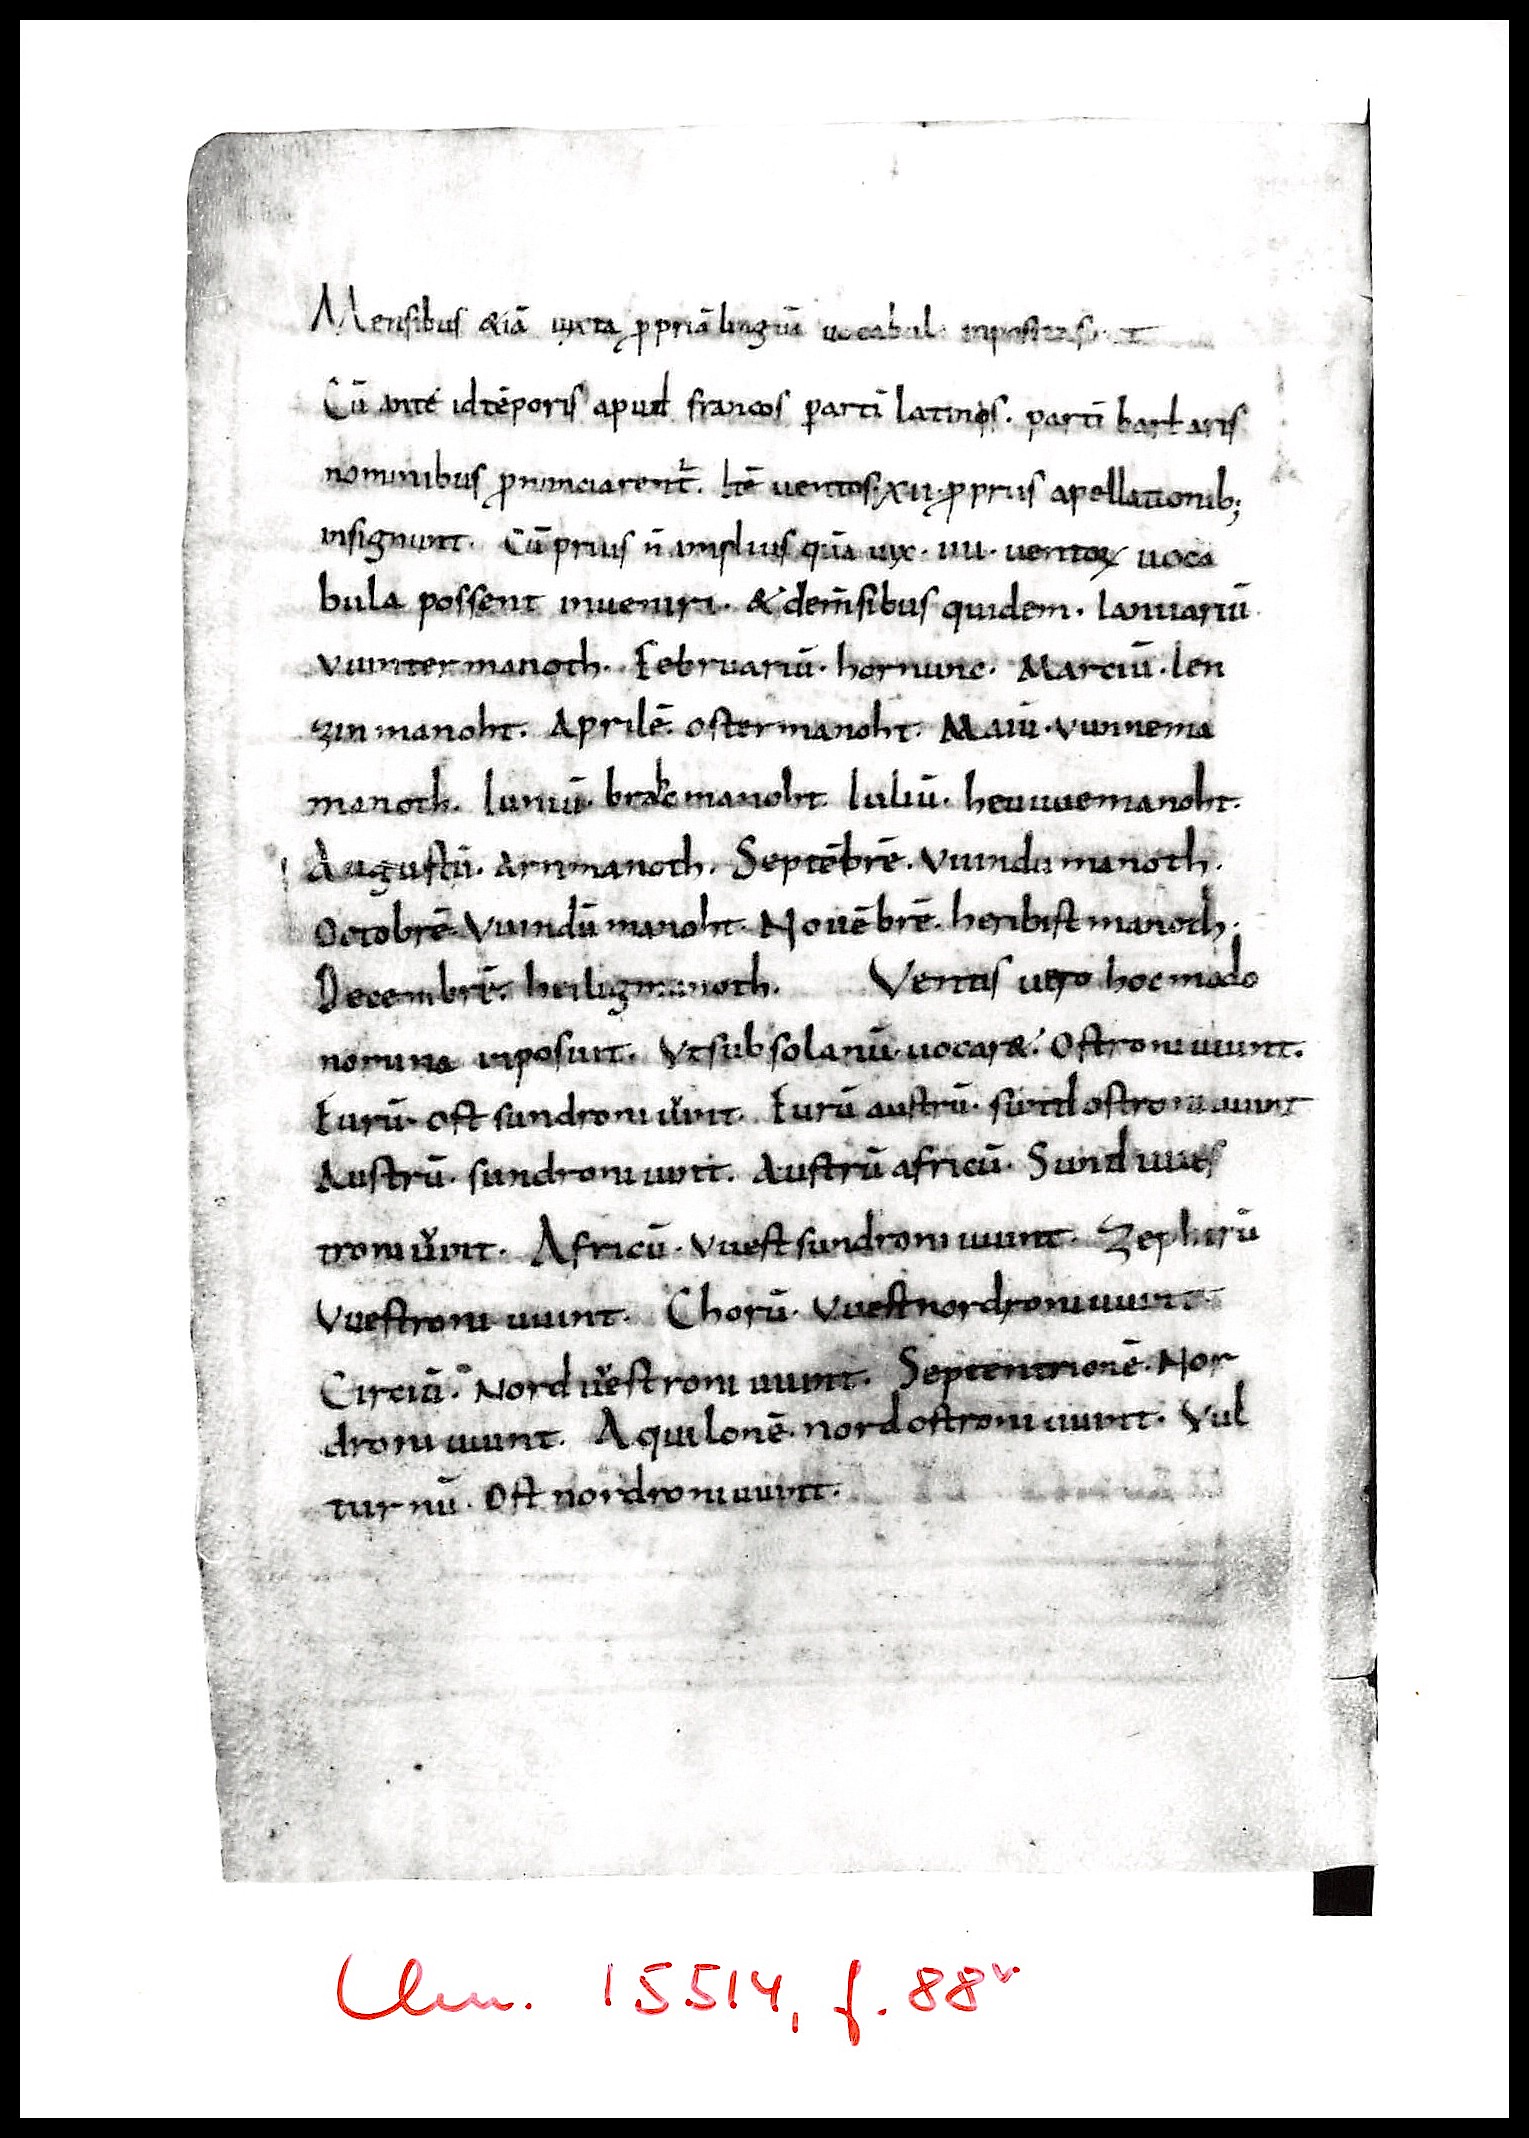 Mensibus &iā iuxta ꝓpriā linguā uocabul
Cū ante idtēporis apud francos partī latinis. partī barbaris
nominibus ꝓnunciarent̄. Itē uentos·xii·ꝓpriis apellationib;
insignuit. Cū prius n̄ amplius quā uix. iiii. uentoꝝ uoca
bula possent inueniri. & dem̄sibus quidem. Ianuariū
vuinter manoth. Februariū. hornunc. Marciū. len
zin manoht. Aprilē. ostermanoht. Maiū. vuinnema
manoth. Iuniū. brahcmanoht. Iuliū. heuuuemanoht.
Augustū. arnmanoth. Septēbrē. vuindu manoth.
Octobrē. Vuindū manoht. Nouēbrē. heribist manoth.
Decembrē. heiligmanoth. Ventis uero hocmodo
nomina inposuit. Vtsubsolanū uocar&. Ostroniuuint.
Eurū. ost sundroni uuint. Eurū austrū. sundostroniuuint
Austrū. sundroni uuint. Austrū africū. Sund uues
troni uuint. Africū. Vuestsundroni uuint. Zephirū
Vuestroni uuint. Chorū. Vuestnordroniuuint.
Circiū. Norduuestroni uuint. Septentrionē. Nor
droni uuint. Aquilonē. nordostroni uuint. Vul
turnū. Ost nordroniuuint.
Clm. 15514, f. 88v